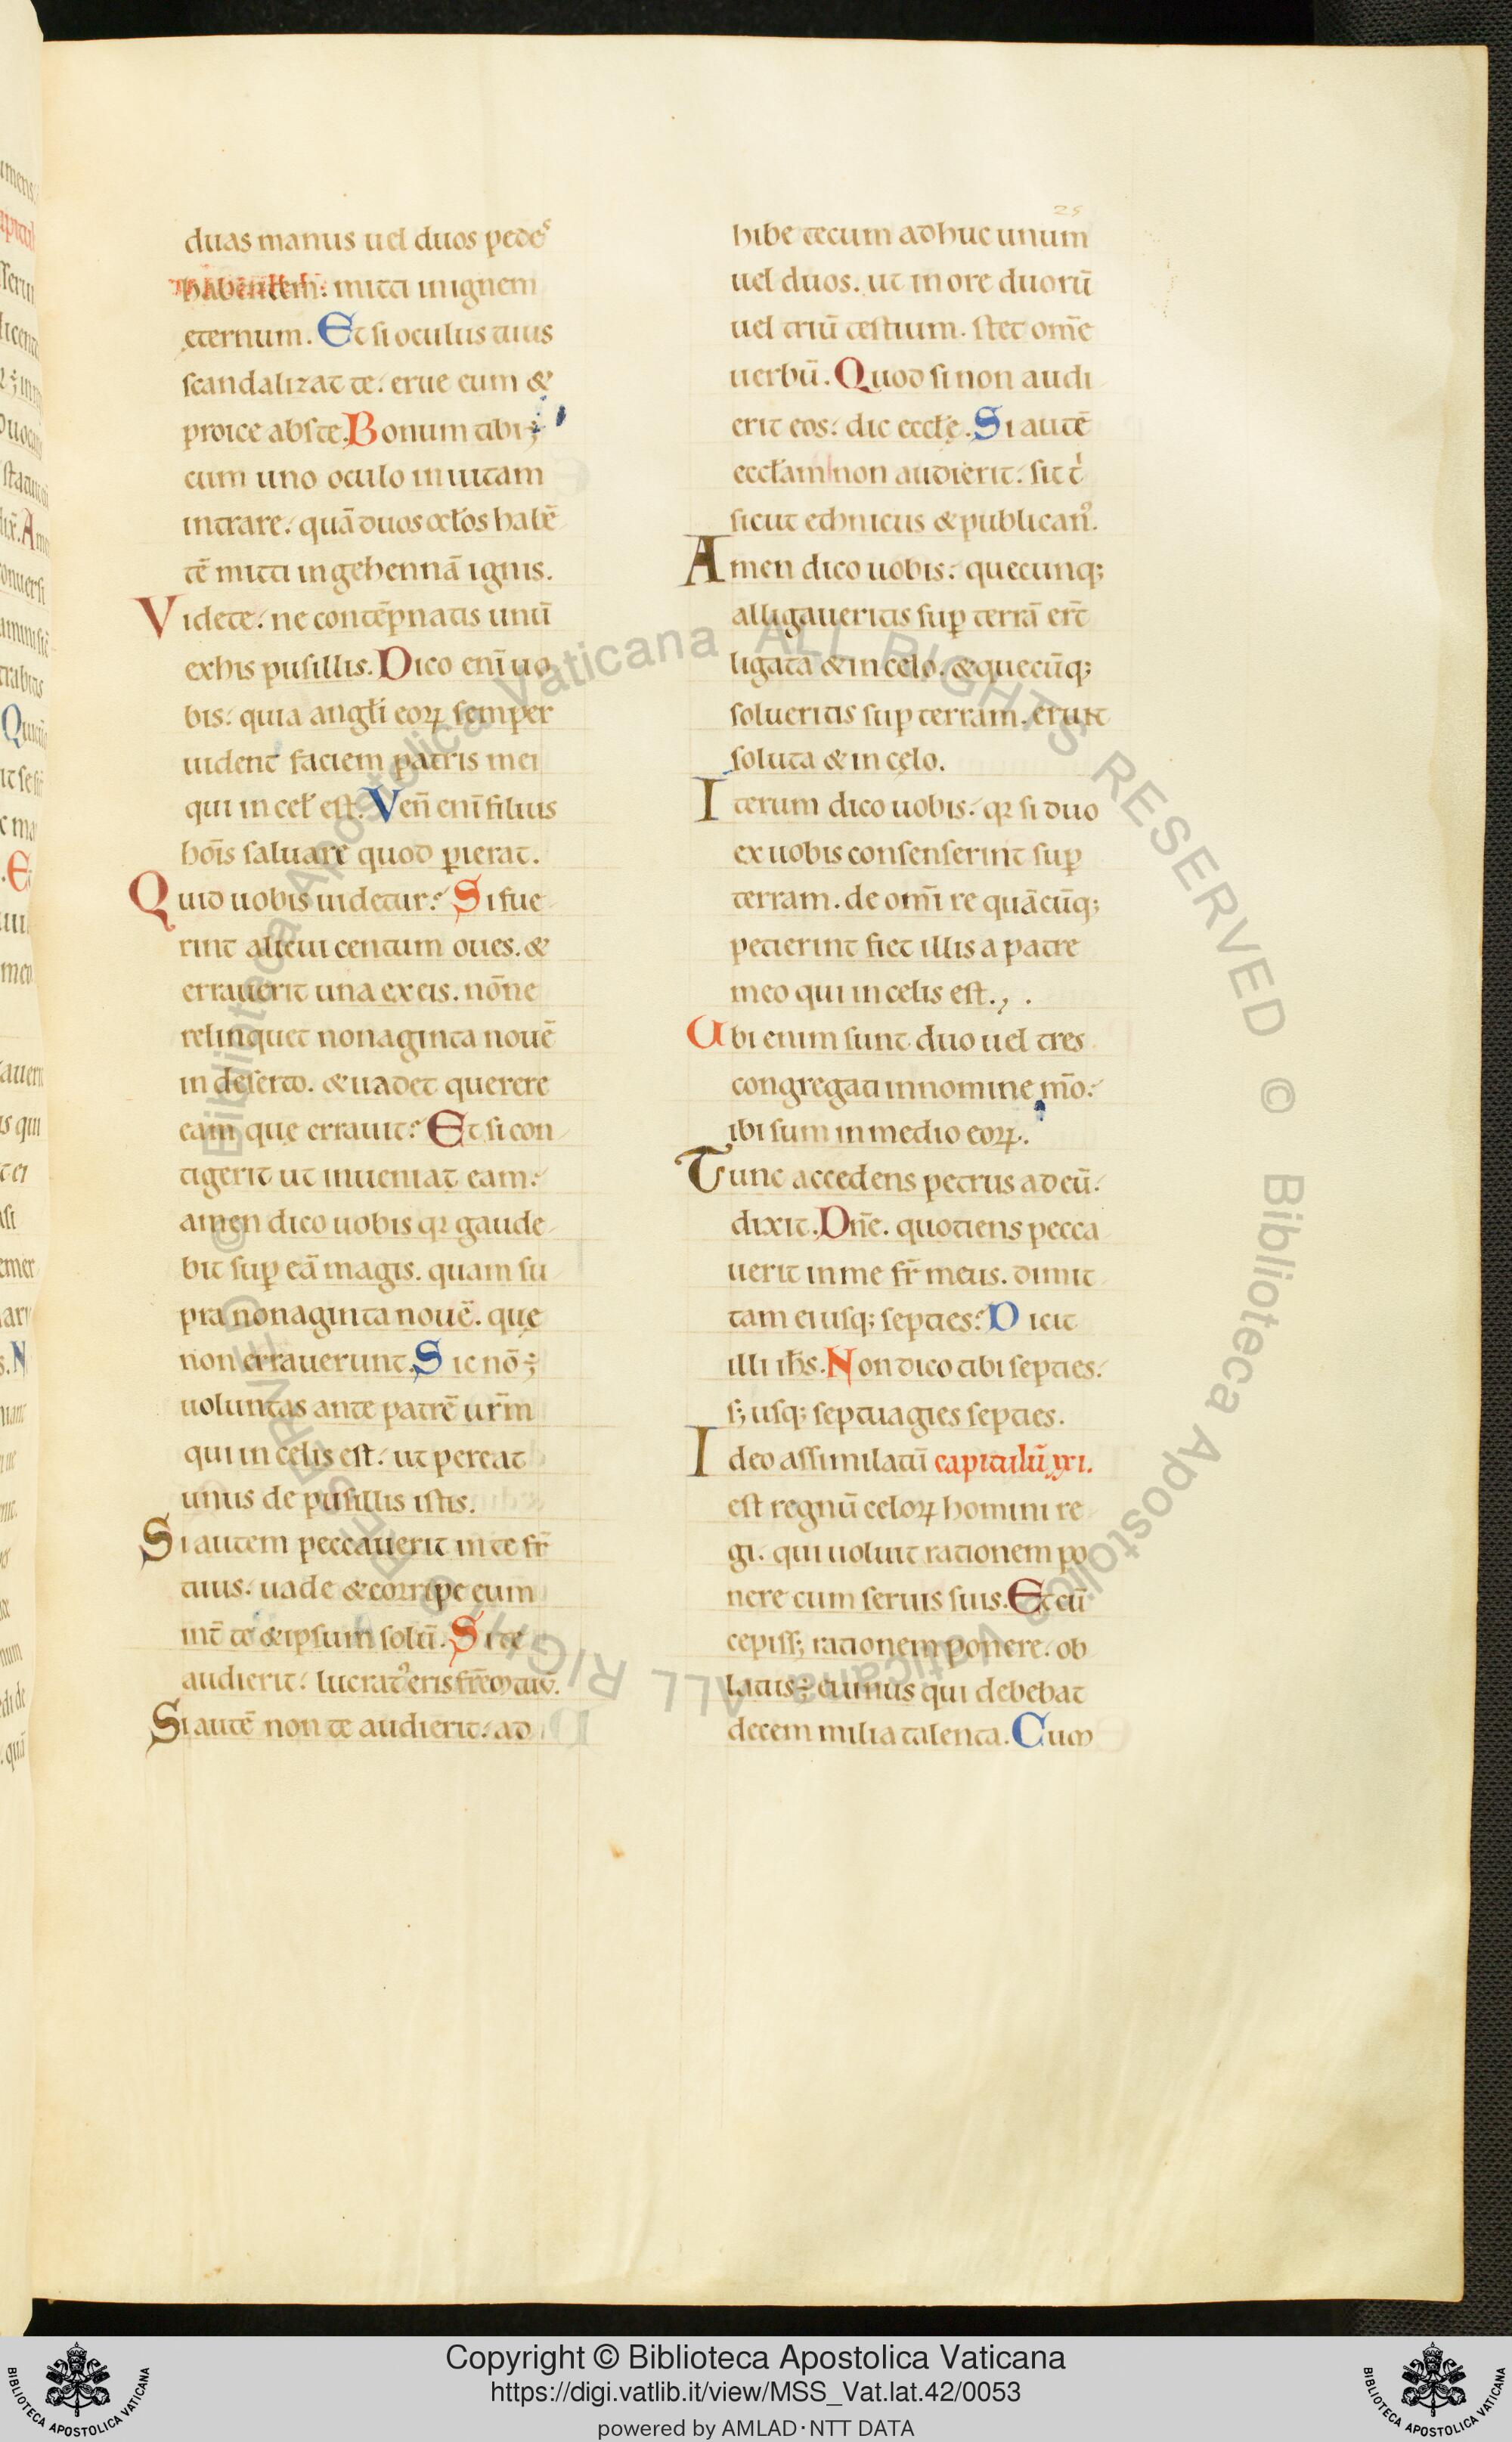 25
duas manus uel duos pedes
habentem: mitti in ignem
eternum. Et si oculus tuus
scandalizat te. erue eum &
proice abste. Bonum tibi ÷
cum uno oculo in uitam
intrare. quā duos oclos habē
tē mitti in gehennā ignis.
Videte. ne contēpnatis unū
ex his pusillis. Dico enī uo
bis. quia angłi eoꝝ semper
uident faciem patris mei
qui in celˀ est. Veñ enī filius
hoīs saluare quod ꝑierat.
Quid uobis uidetur? Si fue
rint alicui centum oues. &
errauerit una ex eis. nōne
relinquet nonaginta nouē
in deserto. & uadet querere
eam que errauit? Et si con
tigerit ut inueniat eam.
amen dico uobis qꝛ gaude
bit suꝑ eā magis. quam su
pra nonaginta nouē. que
non errauerunt. Sic nō ÷
uoluntas ante patrē ur̄m
qui in celis est. ut pereat
unus de pusillis istis.
Si autem peccauerit in te fr̄
tuus. uade & corripe eum
int̄ te & ipsum solū. Si te
audierit. lucratˀ eris fr̄em tuū.
Si autē non te audierit. ad
hibe tecum adhuc unum
uel duos. ut in ore duorū
uel triū testium. stet om̄e
uerbū. Quod si non audi
erit eos. dic eccłę. Si autē
eccłam non audierit. sit t̍
sicut ethnicus & publicanˀ.
Amen dico uobis. quecunqꝫ
alligaueritis suꝑ terrā er̄t
ligata & in celo. & quecūqꝫ
solueritis suꝑ terram. erunt
soluta & in cęlo.
Iterum dico uobis. qꝛ si duo
ex uobis consenserint suꝑ
terram. de om̄i re quācūqꝫ
petierint fiet illis a patre
meo qui in celis est.
Ubi enim sunt duo uel tres
congregati in nomine m̄o.
ibi sum in medio eoꝝ.
Tunc accedens petrus ad eū.
dixit. Dn̄e. quotiens pecca
uerit in me fr̄ meus. dimit
tam ei usqꝫ septies? Dicit
illi ih̄s. Non dico tibi septies.
sꝫ usqꝫ septuagies septies.
Ideo assimilatū capitulū xxi.
est regnū celoꝝ homini re
gi. qui uoluit rationem po
nere cum seruis suis. Et cū
cepissꝫ rationem ponere. ob
latus ÷ ei unus qui debebat
decem milia talenta. Cum
© Biblioteca Apostolica Vaticana ALL RIGHTS RESERVED
© Biblioteca Apostolica Vaticana ALL RIGHTS RESERVED
Copyright © Biblioteca Apostolica Vaticana
https://digi.vatlib.it/view/MSS_Vat.lat.42/0053
powered by AMLAD·NTT DATA
BIBLIOTECA APOSTOLICA VATICANA
BIBLIOTECA APOSTOLICA VATICANA